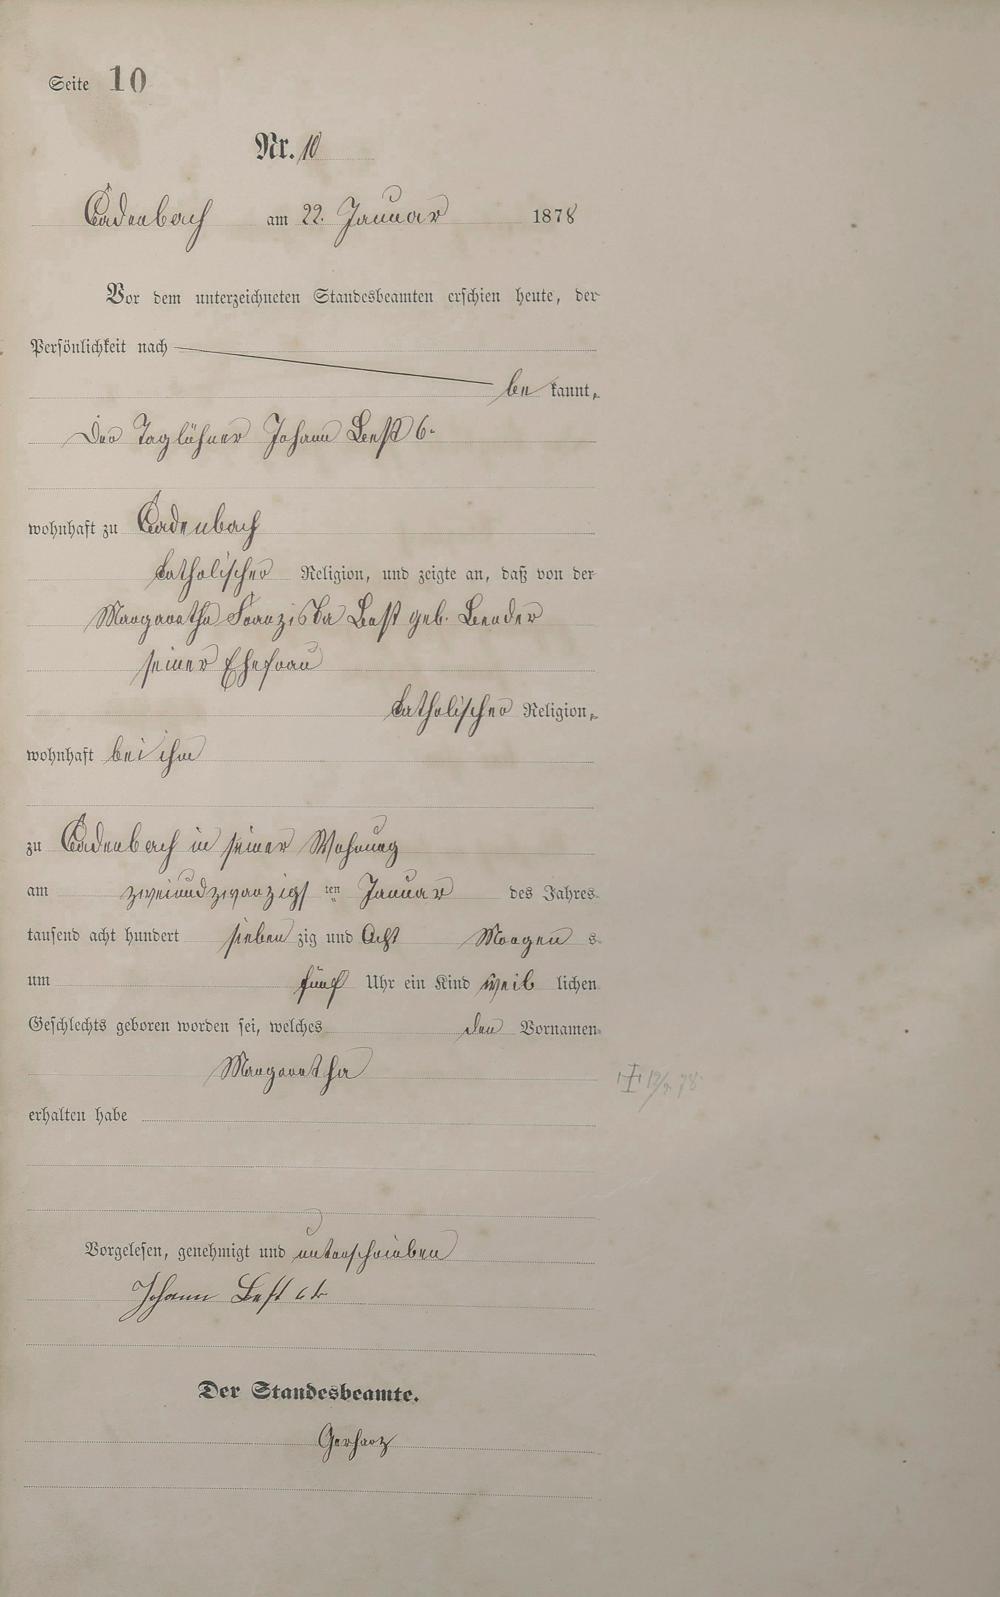 Seite 10
Nr. 10
Cadenbach am 22. Januar 1878
Vor dem unterzeichneten Standesbeamten erschien heute, der
Persönlichkeit nach
be kannt,
Der Taglöhner Johann Best 6.
wohnhaft zu Cadenbach
katholischer Religion, und zeigte an, daß von der
Margaretha Franziska Best geb. Bender
seiner Ehefrau
katholischer Religion,
wohnhaft bei ihm
zu Cadenbach in seiner Wohnung
am zweiundzwanzigs ten Januar des Jahres
tausend acht hundert sieben zig und Acht Morgen s
um fünf Uhr ein Kind weib lichen
Geschlechts geboren worden sei, welches den Vornamen
Margaretha
erhalten habe
Vorgelesen, genehmigt und unterschrieben
Johann Best 6t
Der Standesbeamte.
Gerharz